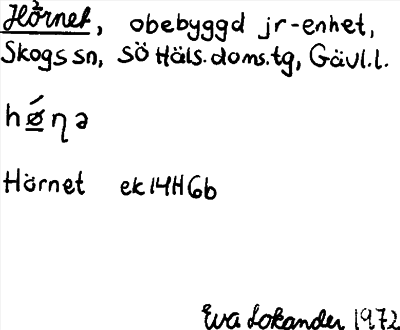 Hörnet, obebyggd jr-enhet,
Skogs sn, SÖ Häls. doms.tg, Gävl.l.
hǿηə
Hörnet ek14H6b
Eva Lokander 1972